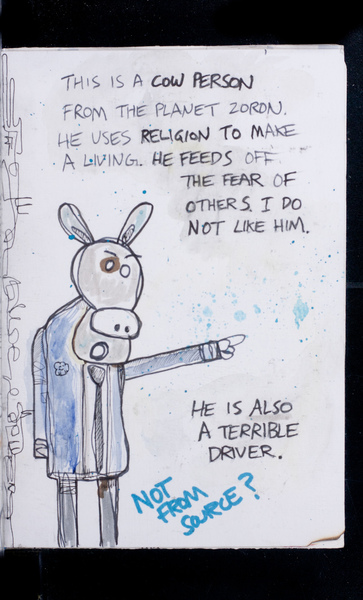 THIS IS A COW PERSON
FROM THE PLANET ZORDN.
HE USES RELIGION TO MAKE
A LIVING. HE FEEDS OFF
THE FEAR OF
OTHERS. I DO
NOT LIKE HIM.
HE IS ALSO
A TERRIBLE
DRIVER.
NOT
FROM
SOURCE?